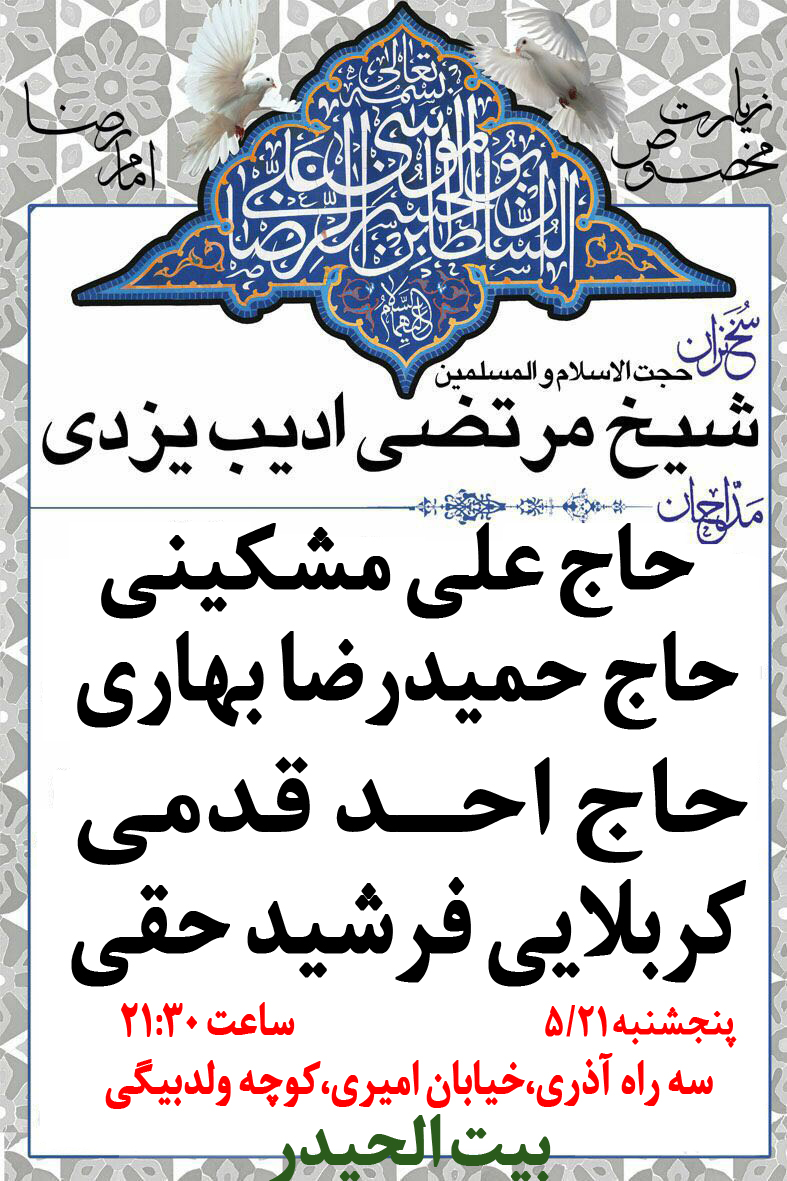 زیارت
مخصوص
امام رضا
بسمه تعالی
السلطان ابوالحسن علی بن موسی الرضا
علیهما السلام
سخنران
حجت الاسلام و المسلمین
شیخ مرتضی ادیب یزدی
مداحان
حاج علی مشکینی
حاج حمیدرضا بهاری
حاج احد قدمی
کربلایی فرشید حقی
پنجشنبه ۵/۲۱ ساعت ۲۱:۳۰
سه راه آذری،خیابان امیری،کوچه ولدبیگی
بیت الحیدر